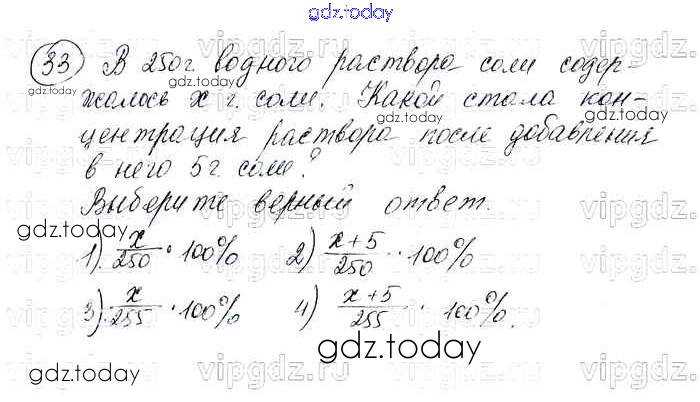 gdz.today
33 В 250 г. водного раствора соли содер-
жалось x г. соли. Какой стала кон-
центрация раствора после добавления
в него 5 г. соли?
Выберите верный ответ.
1) x/250 · 100% 2) x+5/250 · 100%
3) x/255 · 100% 4) x+5/255 · 100%.
gdz.today
gdz.today
gdz.today
gdz.today
gdz.today
gdz.today
vipgdz.z
vipgdz.z
vipgdz.z